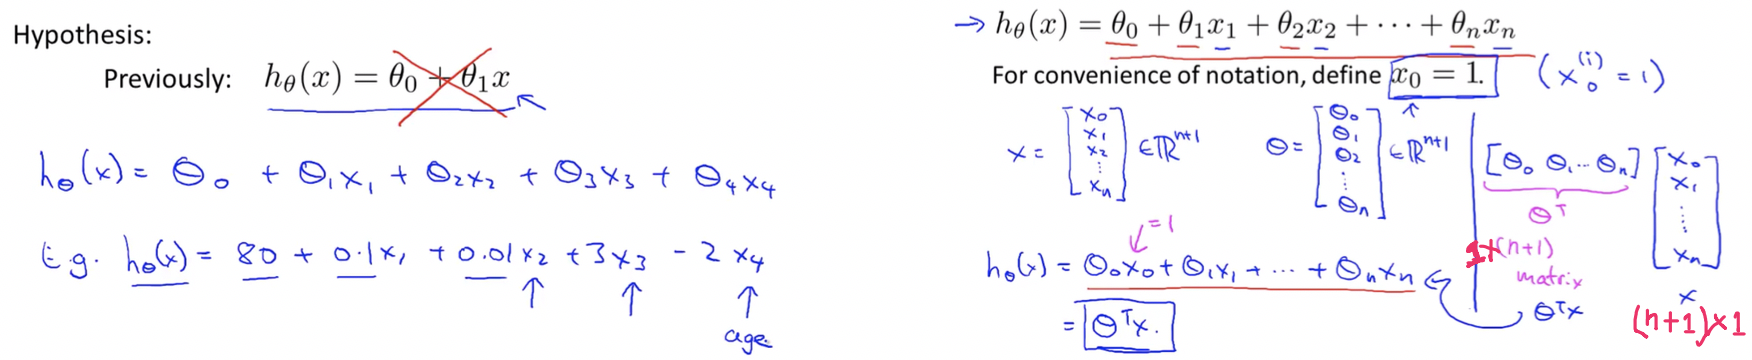 Hypothesis:
Previously: hθ(x) = θ0 + θ1x
hθ(x) = θ0 + θ1x1 + θ2x2 + θ3x3 + θ4x4
E.g. hθ(x) = 80 + 0.1x1 + 0.01x2 + 3x3 - 2x4
age
→ hθ(x) = θ0 + θ1x1 + θ2x2 + ··· + θnxn
For convenience of notation, define x0 = 1. (x0^(i) = 1)
x = [x0 x1 x2 ⋮ xn] ∈ ℝ^(n+1) θ = [θ0 θ1 θ2 ⋮ θn] ∈ ℝ^(n+1)
[θ0 θ1 ... θn] [x0 x1 ⋮ xn]
θ^T
1×(n+1)
matrix
x
(n+1)×1
θ^T x
=1
hθ(x) = θ0x0 + θ1x1 + ··· + θnxn
= θ^T x.